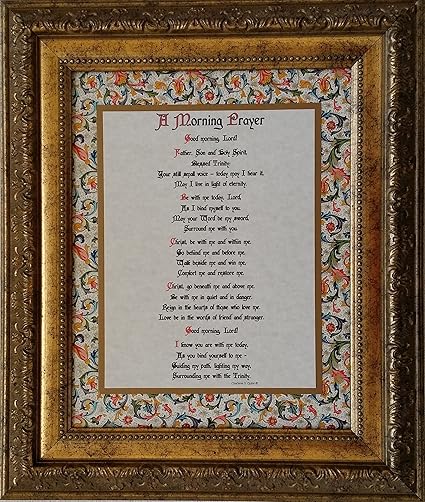 A Morning Prayer
Good morning, Lord!
Father, Son and Holy Spirit,
Blessed Trinity.
Your still small voice – today may I hear it,
May I live in light of eternity.
Be with me today, Lord,
As I bind myself to you.
May your Word be my sword,
Surround me with you.
Christ, be with me and within me.
Go behind me and before me.
Walk beside me and win me,
Comfort me and restore me.
Christ, go beneath me and above me.
Be with me in quiet and in danger.
Reign in the hearts of those who love me.
Love be in the words of friend and stranger.
Good morning, Lord!
I know you are with me today.
As you bind yourself to me –
Guiding my path, lighting my way.
Surrounding me with the Trinity.